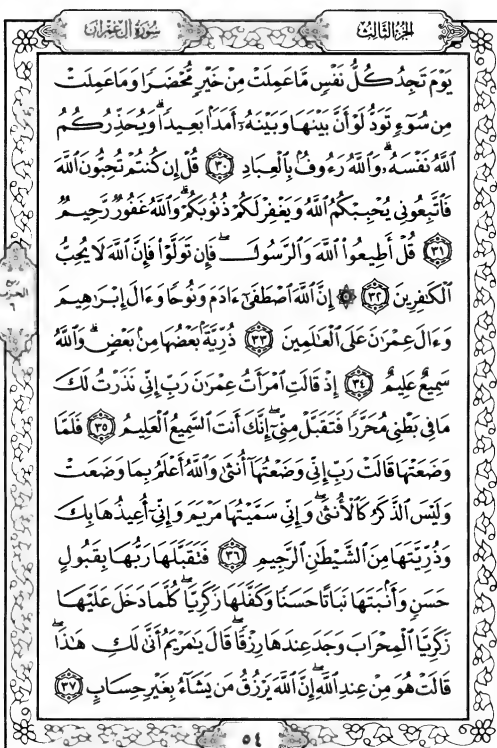 سُورَةُ آلِ عِمْرَانَ الجُزْءُ الثَّالِثُ
يَوْمَ تَجِدُ كُلُّ نَفْسٍ مَّا عَمِلَتْ مِنْ خَيْرٍ مُّحْضَرًا وَمَا عَمِلَتْ
مِن سُوٓءٍ تَوَدُّ لَوْ أَنَّ بَيْنَهَا وَبَيْنَهُۥٓ أَمَدًۢا بَعِيدًاۗ وَيُحَذِّرُكُمُ
ٱللَّهُ نَفْسَهُۥۗ وَٱللَّهُ رَءُوفُۢ بِٱلْعِبَادِ ٣٠ قُلْ إِن كُنتُمْ تُحِبُّونَ ٱللَّهَ
فَٱتَّبِعُونِى يُحْبِبْكُمُ ٱللَّهُ وَيَغْفِرْ لَكُمْ ذُنُوبَكُمْۗ وَٱللَّهُ غَفُورٌ رَّحِيمٌ
٣١ قُلْ أَطِيعُوا۟ ٱللَّهَ وَٱلرَّسُولَۖ فَإِن تَوَلَّوْا۟ فَإِنَّ ٱللَّهَ لَا يُحِبُّ
ٱلْكَٰفِرِينَ ٣٢ ۞ إِنَّ ٱللَّهَ ٱصْطَفَىٰٓ ءَادَمَ وَنُوحًا وَءَالَ إِبْرَٰهِيمَ
وَءَالَ عِمْرَٰنَ عَلَى ٱلْعَٰلَمِينَ ٣٣ ذُرِّيَّةَۢ بَعْضُهَا مِنۢ بَعْضٍۗ وَٱللَّهُ
سَمِيعٌ عَلِيمٌ ٣٤ إِذْ قَالَتِ ٱمْرَأَتُ عِمْرَٰنَ رَبِّ إِنِّى نَذَرْتُ لَكَ
مَا فِى بَطْنِى مُحَرَّرًا فَتَقَبَّلْ مِنِّىٓۖ إِنَّكَ أَنتَ ٱلسَّمِيعُ ٱلْعَلِيمُ ٣٥ فَلَمَّا
وَضَعَتْهَا قَالَتْ رَبِّ إِنِّى وَضَعْتُهَآ أُنثَىٰ وَٱللَّهُ أَعْلَمُ بِمَا وَضَعَتْ
وَلَيْسَ ٱلذَّكَرُ كَٱلْأُنثَىٰۖ وَإِنِّى سَمَّيْتُهَا مَرْيَمَ وَإِنِّىٓ أُعِيذُهَا بِكَ
وَذُرِّيَّتَهَا مِنَ ٱلشَّيْطَٰنِ ٱلرَّجِيمِ ٣٦ فَتَقَبَّلَهَا رَبُّهَا بِقَبُولٍ
حَسَنٍ وَأَنۢبَتَهَا نَبَاتًا حَسَنًا وَكَفَّلَهَا زَكَرِيَّاۖ كُلَّمَا دَخَلَ عَلَيْهَا
زَكَرِيَّا ٱلْمِحْرَابَ وَجَدَ عِندَهَا رِزْقًاۖ قَالَ يَٰمَرْيَمُ أَنَّىٰ لَكِ هَٰذَاۖ
قَالَتْ هُوَ مِنْ عِندِ ٱللَّهِۖ إِنَّ ٱللَّهَ يَرْزُقُ مَن يَشَآءُ بِغَيْرِ حِسَابٍ ٣٧
٥٤